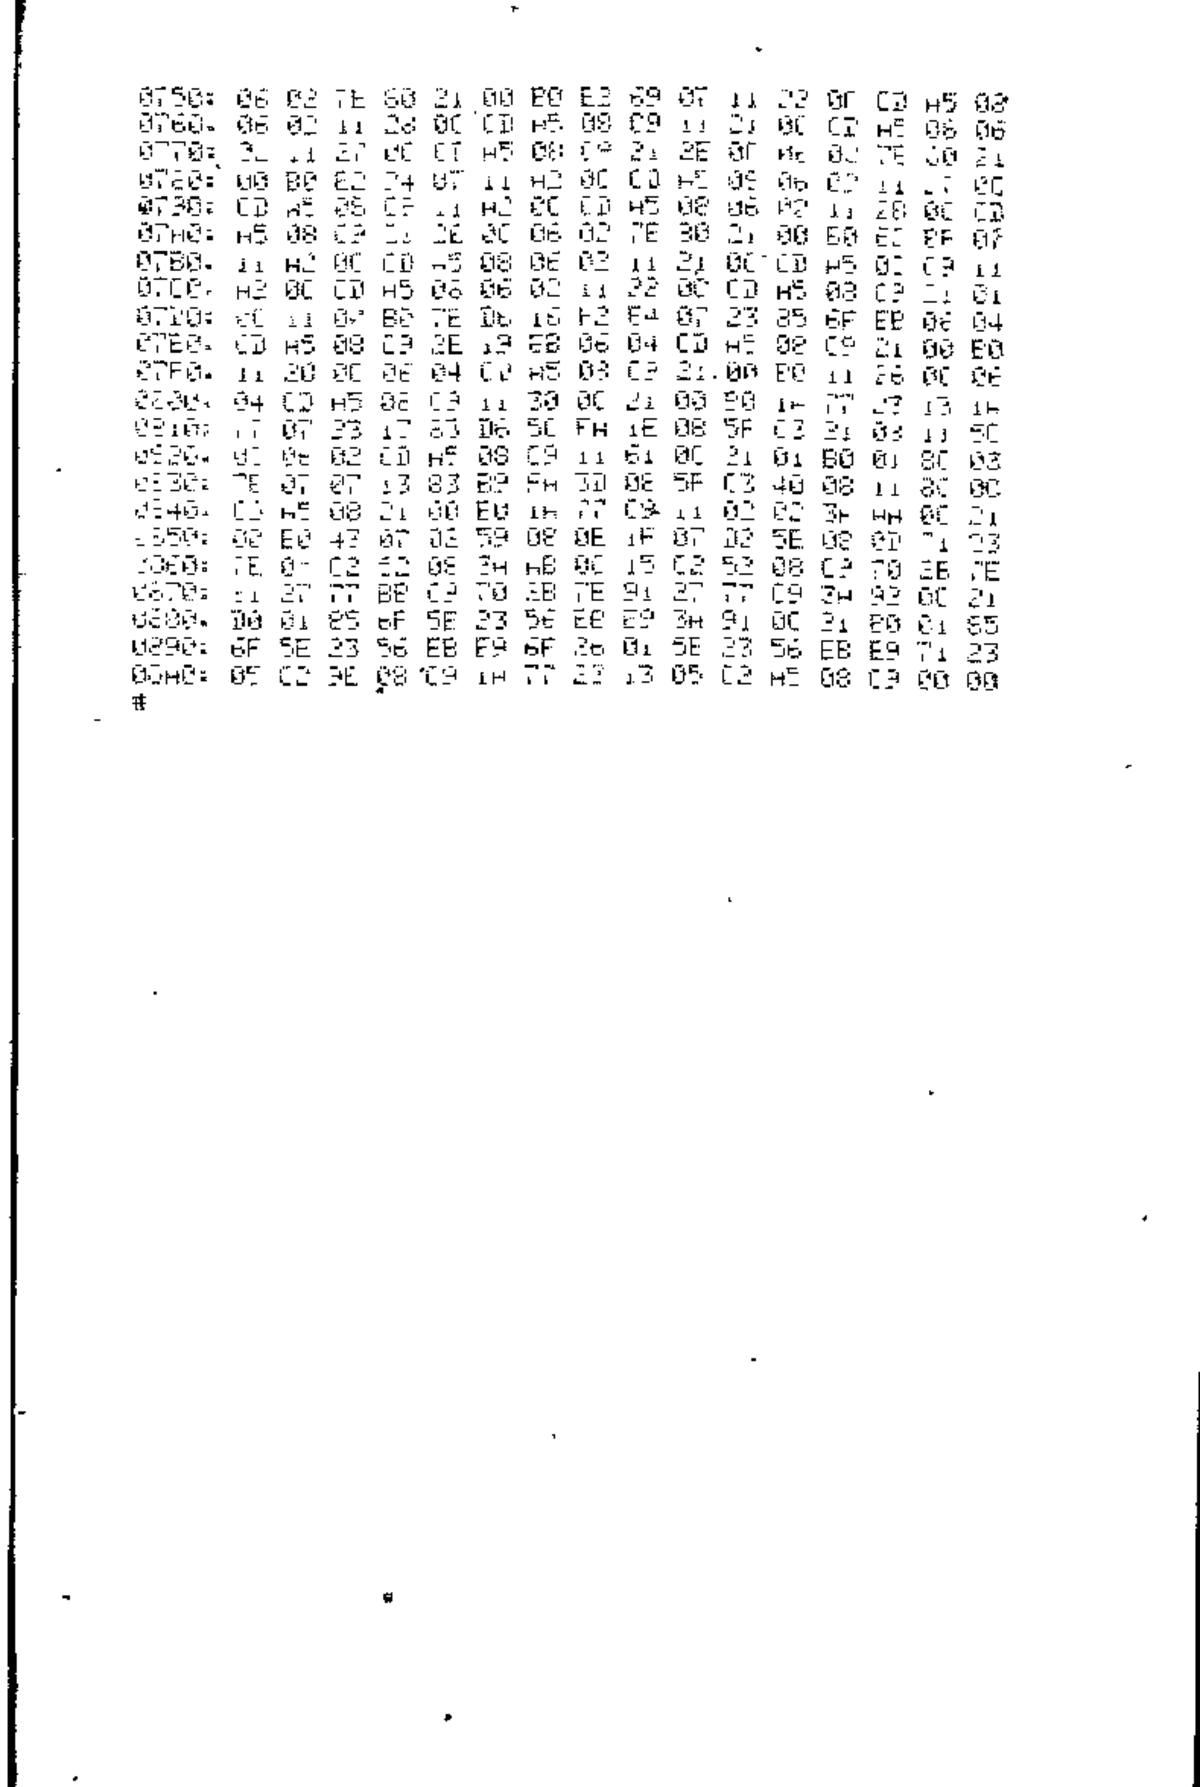 0750: 06 02 7E 60 21 00 B0 E2 69 07 11 22 0C CD A5 08
0760: 06 02 11 28 0C CD A5 08 C9 11 21 0C CD A5 08 06
0770: 02 11 27 0C CD A5 08 C9 21 2E 0C 06 02 7E 21
0780: 00 B0 E2 94 07 11 A2 0C CD A5 08 06 02 11 27 0C
0790: CD A5 08 C9 11 A2 0C CD A5 08 06 02 11 28 0C CD
07A0: A5 08 C9 21 2E 0C 06 02 7E 30 21 00 B0 E2 BF 07
07B0: 11 A2 0C CD A5 08 06 02 11 21 0C CD A5 08 C9 11
07C0: A2 0C CD A5 08 06 02 11 22 0C CD A5 08 C9 21 01
07D0: 0C 11 B0 7E D6 16 F2 E4 07 23 85 6F EB 06 04
07E0: CD A5 08 C9 2E 19 EB 06 04 CD A5 08 C9 21 00 B0
07F0: 11 20 0C 06 04 CD A5 08 C9 21 00 B0 11 26 0C 06
0800: 04 CD A5 08 C9 11 30 0C 21 00 90 1A 77 23 13 1A
0810: 77 07 23 13 83 D6 5C FA 1E 08 5F C3 21 08 11 5C
0820: 0C 06 02 CD A5 08 C9 11 61 0C 21 01 B0 01 8C 03
0830: 7E 07 07 13 83 B9 FA 3D 08 5F C3 40 08 11 8C 0C
0840: C3 A5 08 21 00 E0 1A 77 C9 11 02 02 3A AA 0C 21
0850: 02 E0 47 07 D2 59 08 0E 1F 07 D2 5E 08 0D 71 23
0860: 7E C2 52 08 3A AB 0C 15 C2 52 08 C9 70 2B 7E
0870: 27 77 BE C9 70 2B 7E 91 27 77 C9 3A 92 0C 21
0880: D0 01 85 6F 5E 23 56 EB E9 3A 91 0C 21 B0 01 85
0890: 6F 5E 23 56 EB E9 6F 26 01 5E 23 56 EB E9 71 23
08A0: 05 C2 9E 08 C9 1A 77 23 13 05 C2 A5 08 C9 00 00
#